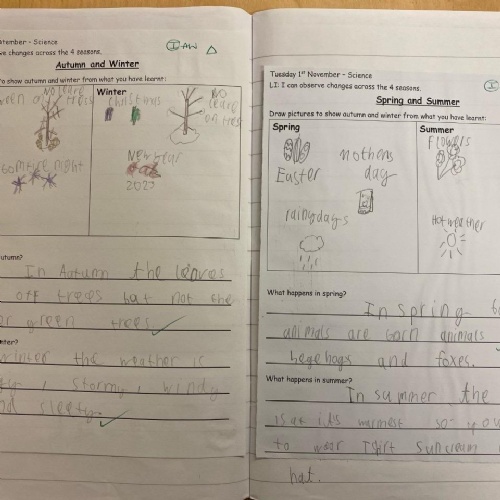 tember - Science
ve changes across the 4 seasons.
I AW
Autumn and Winter
to show autumn and winter from what you have learnt:
no leave
trees
bonfire night
Winter
christmas
no
leave
on trees
New year
2023
autumn?
In Autumn the leaves
off trees but not the
er green trees
inter?
winter the weather is
ty, stormy, windy
nd sleety.
Tuesday 1st November – Science
LI: I can observe changes across the 4 seasons.
I
Spring and Summer
Draw pictures to show autumn and winter from what you have learnt:
Spring
Easter
mothers
day
rainy days
Summer
Flowers
Hot weather
What happens in spring?
In spring
animals are born animals
hegehogs and foxes.
What happens in summer?
In summer the
is at it's warmest so you
to wear Tshirt suncream
hat.